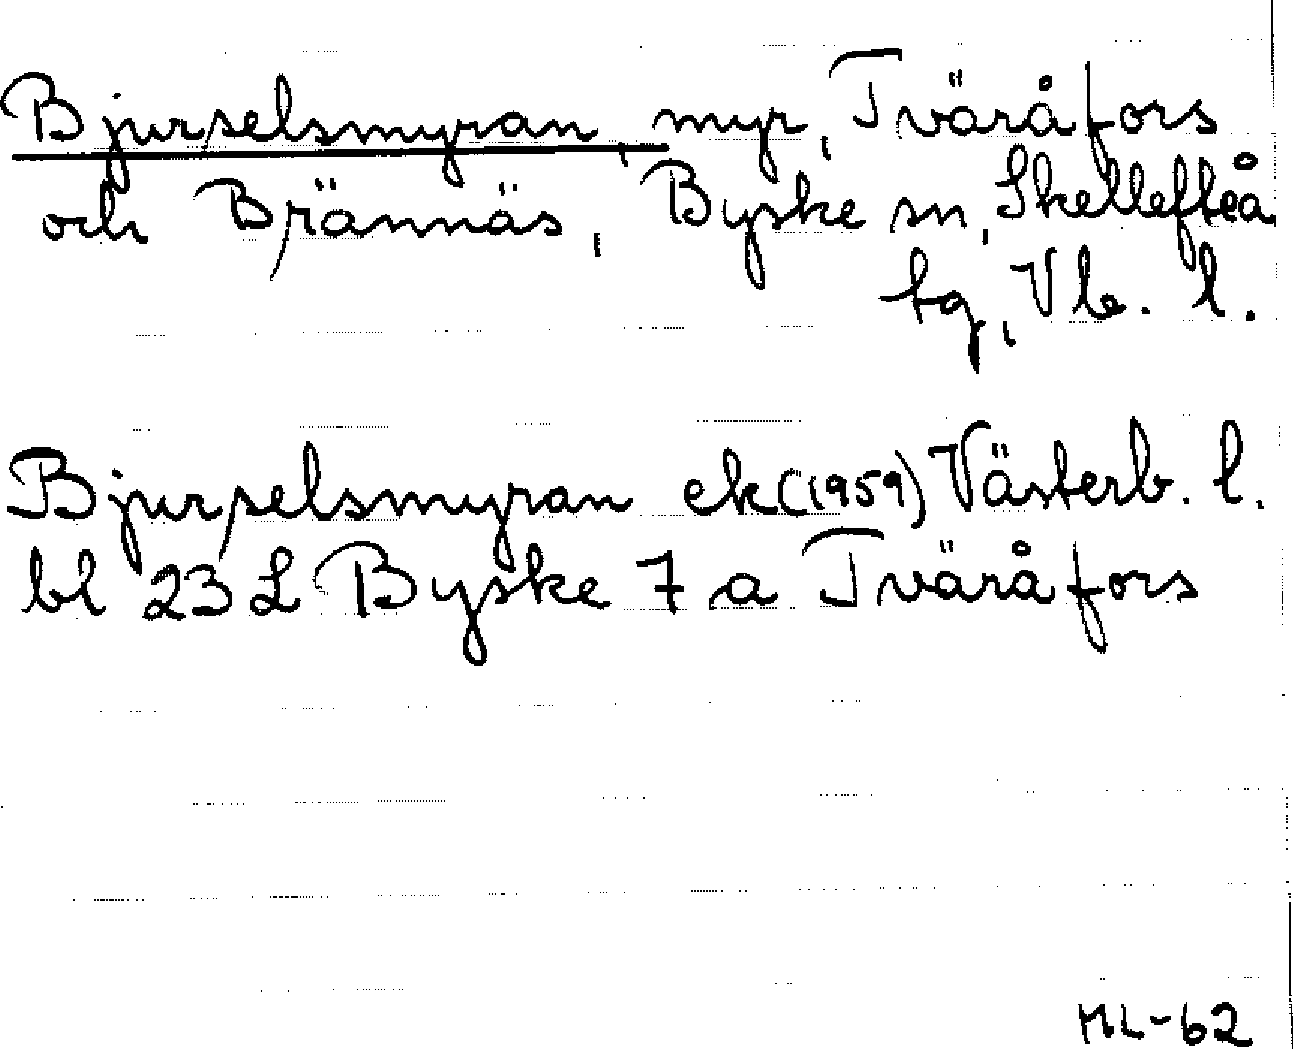 Bjurselsmyran, myr, Tväråfors
och Brännäs, Byske sn, Skellefteå
tg, Vb. l.
Bjurselsmyran ek (1959) Västerb. l.
bl 23 L Byske 7 a Tväråfors
ML-62